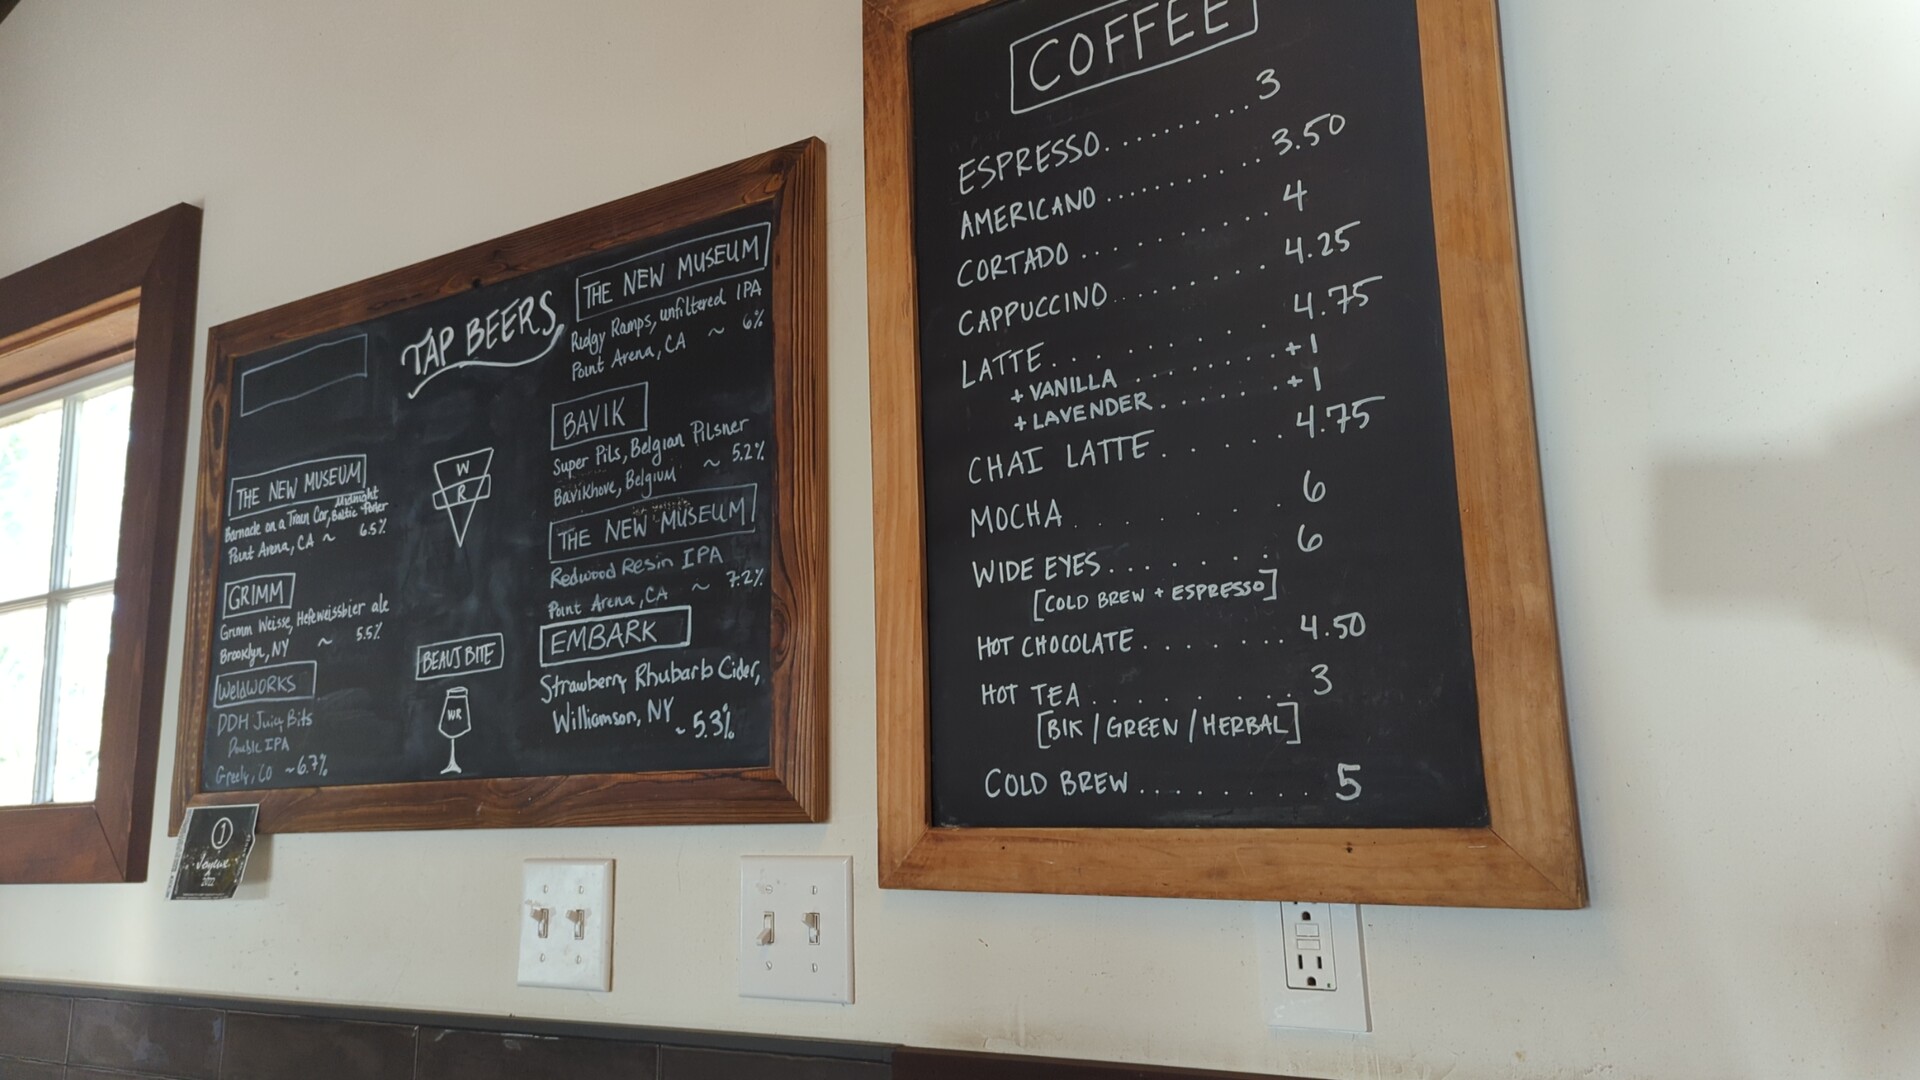 TAP BEERS
THE NEW MUSEUM
Barnacle on a Train Car, Midnight Baltic Porter
Point Arena, CA ~ 6.5%
GRIMM
Grimm Weisse, Hefeweissbier ale
Brooklyn, NY ~ 5.5%
WeldWORKS
DDH Juicy Bits
Double IPA
Greely, CO ~6.7%
W
R
BEAUJ BITE
WR
THE NEW MUSEUM
Ridgy Ramps, unfiltered IPA
Point Arena, CA ~ 6%
BAVIK
Super Pils, Belgian Pilsner
Bavikhove, Belgium ~ 5.2%
THE NEW MUSEUM
Redwood Resin IPA
Point Arena, CA ~ 7.2%
EMBARK
Strawberry Rhubarb Cider,
Williamson, NY ~5.3%
1
2022
COFFEE
ESPRESSO......... 3
AMERICANO........... 3.50
CORTADO.......... 4
CAPPUCCINO......... 4.25
LATTE.......... 4.75
+ VANILLA....... +1
+ LAVENDER...... +1
CHAI LATTE...... 4.75
MOCHA........ 6
WIDE EYES....... 6
[COLD BREW + ESPRESSO]
HOT CHOCOLATE....... 4.50
HOT TEA......... 3
[BlK / GREEN / HERBAL]
COLD BREW......... 5